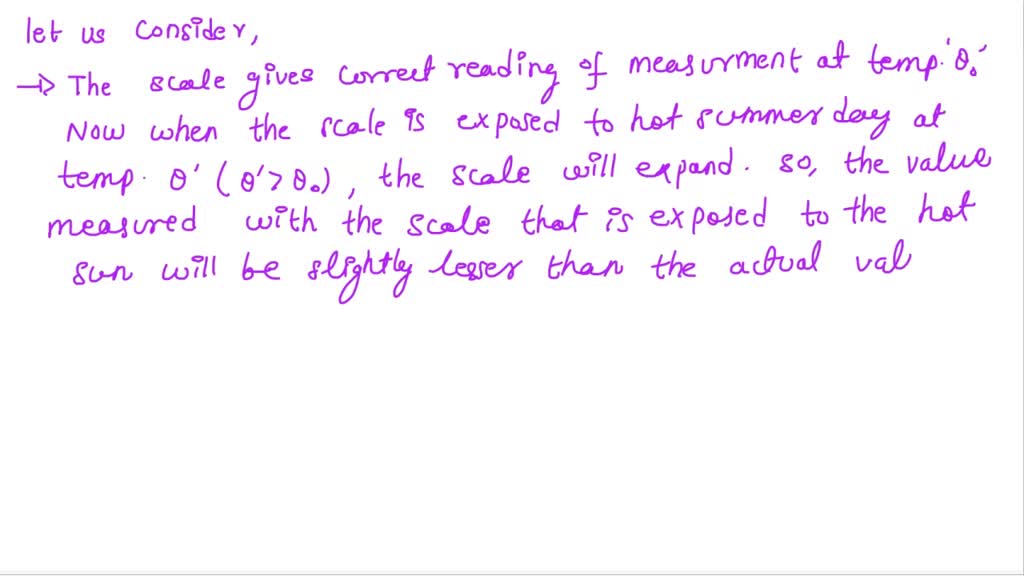 let us consider,
→ The scale gives correct reading of measurment at temp. 'θ₀'
Now when the scale is exposed to hot summer day at
temp. θ' (θ'>θ₀), the scale will expand. so, the value
measured with the scale that is exposed to the hot
sun will be slightly lesser than the actual val